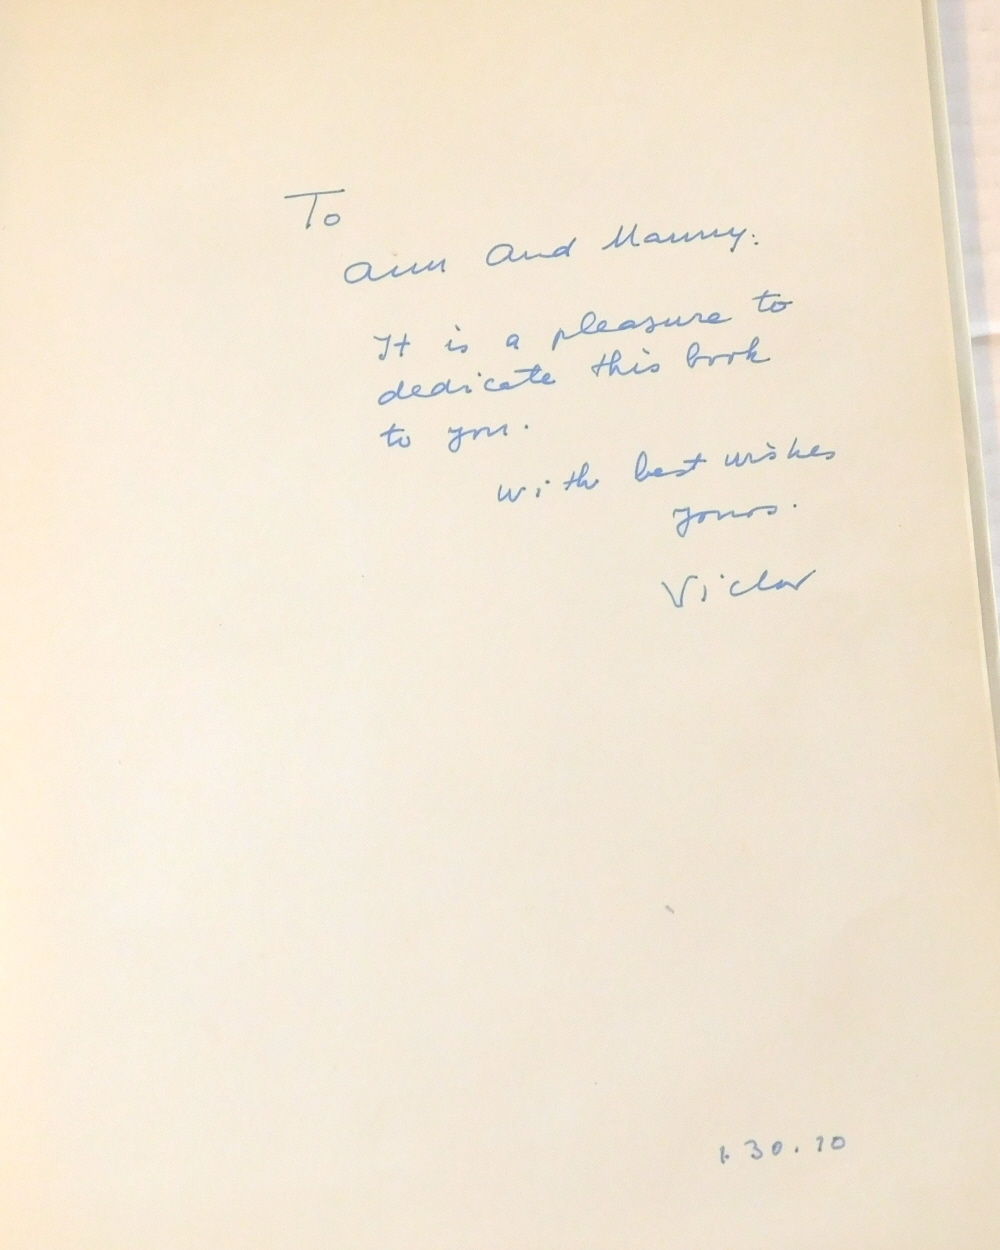 To
Ann And Manny:
It is a pleasure to
dedicate this book
to you.
With best wishes
yours.
Victor
1.30.70